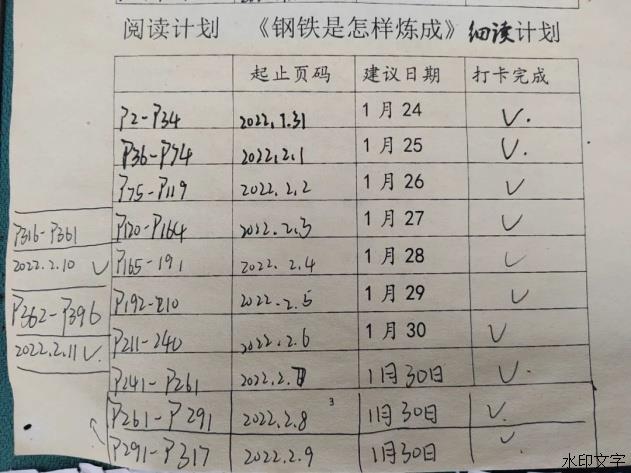 阅读计划 《钢铁是怎样炼成》细读计划
起止页码 建议日期 打卡完成
P2-P34 2022.1.31 1月24 √.
P36-P74 2022.2.1 1月25 √.
P75-P119 2022.2.2 1月26 √
P120-P164 2022.2.3 1月27 √
P165-191 2022.2.4 1月28 √
P192-210 2022.2.5 1月29 √
P211-240 2022.2.6 1月30 √
P241-P261 2022.2.7 1月30日 √
P261-P291 2022.2.8 3 1月30日 √
P291-P317 2022.2.9 1月30日 √
P316-P361
2022.2.10 √
P362-P396
2022.2.11 √.
水印文字